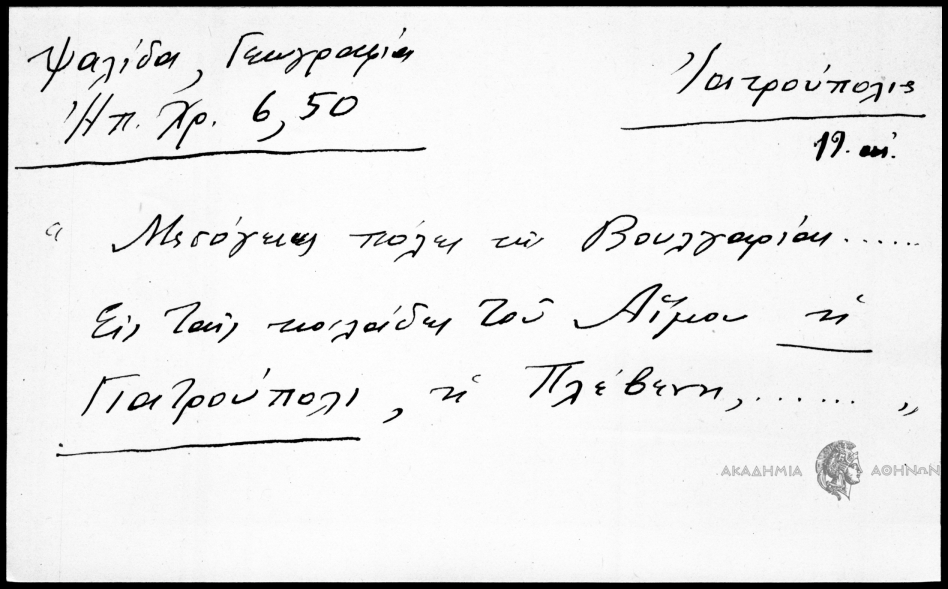 Ψαλίδα, Γεωγραφία
Ἠπ. Χρ. 6,50
Ἰατρούπολις
19. αἰ.
“ Μεσόγειες πόλες τῆς Βουλγαρίας......
Εἰς ταῖς κοιλάδες τοῦ Αἵμου ἡ
Γιατρούπολι, ἡ Πλέβενη,...... „
ΑΚΑΔΗΜΙΑ ΑΘΗΝΩΝ